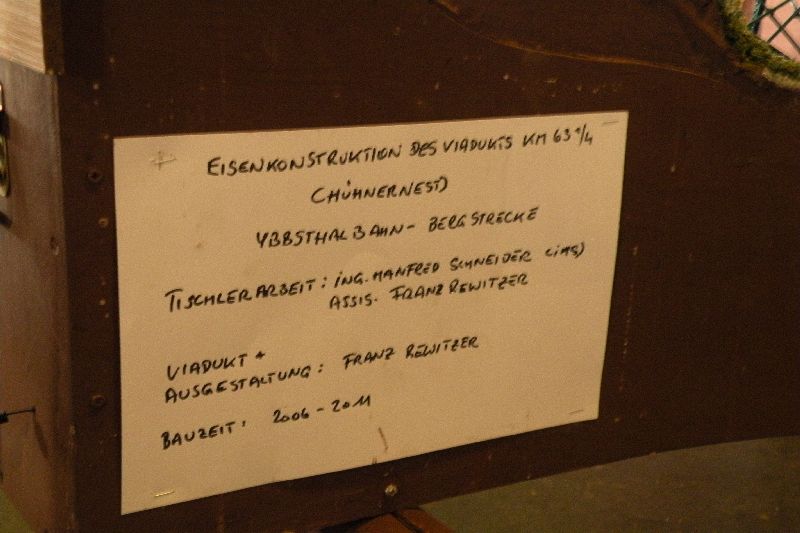 EISENKONSTRUKTION DES VIADUKTS KM 63 1/4
(HÜHNERNEST)
YBBSTHALBAHN- BERGSTRECKE
TISCHLERARBEIT: ING. MANFRED SCHNEIDER
ASSIS. FRANZ REWITZER
VIADUKT +
AUSGESTALTUNG: FRANZ REWITZER
BAUZEIT: 2006 - 2011